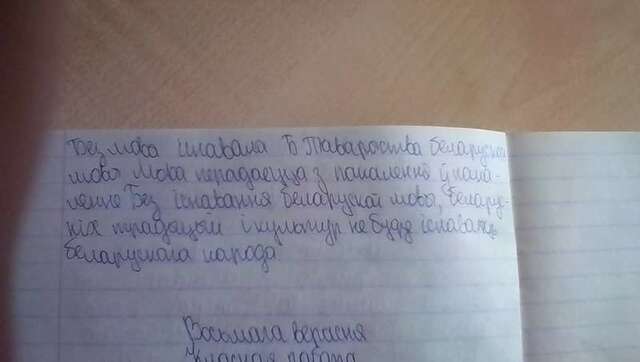 Без мова існавала Б Таварыства беларускай
мовы Мова перадаецца з пакалення ў пака-
ленне Без існавання беларускай мовы, беларус-
кіх традыцый і культур не будзе існаваць
беларускага народа
Восьмага верасня
Класная работа